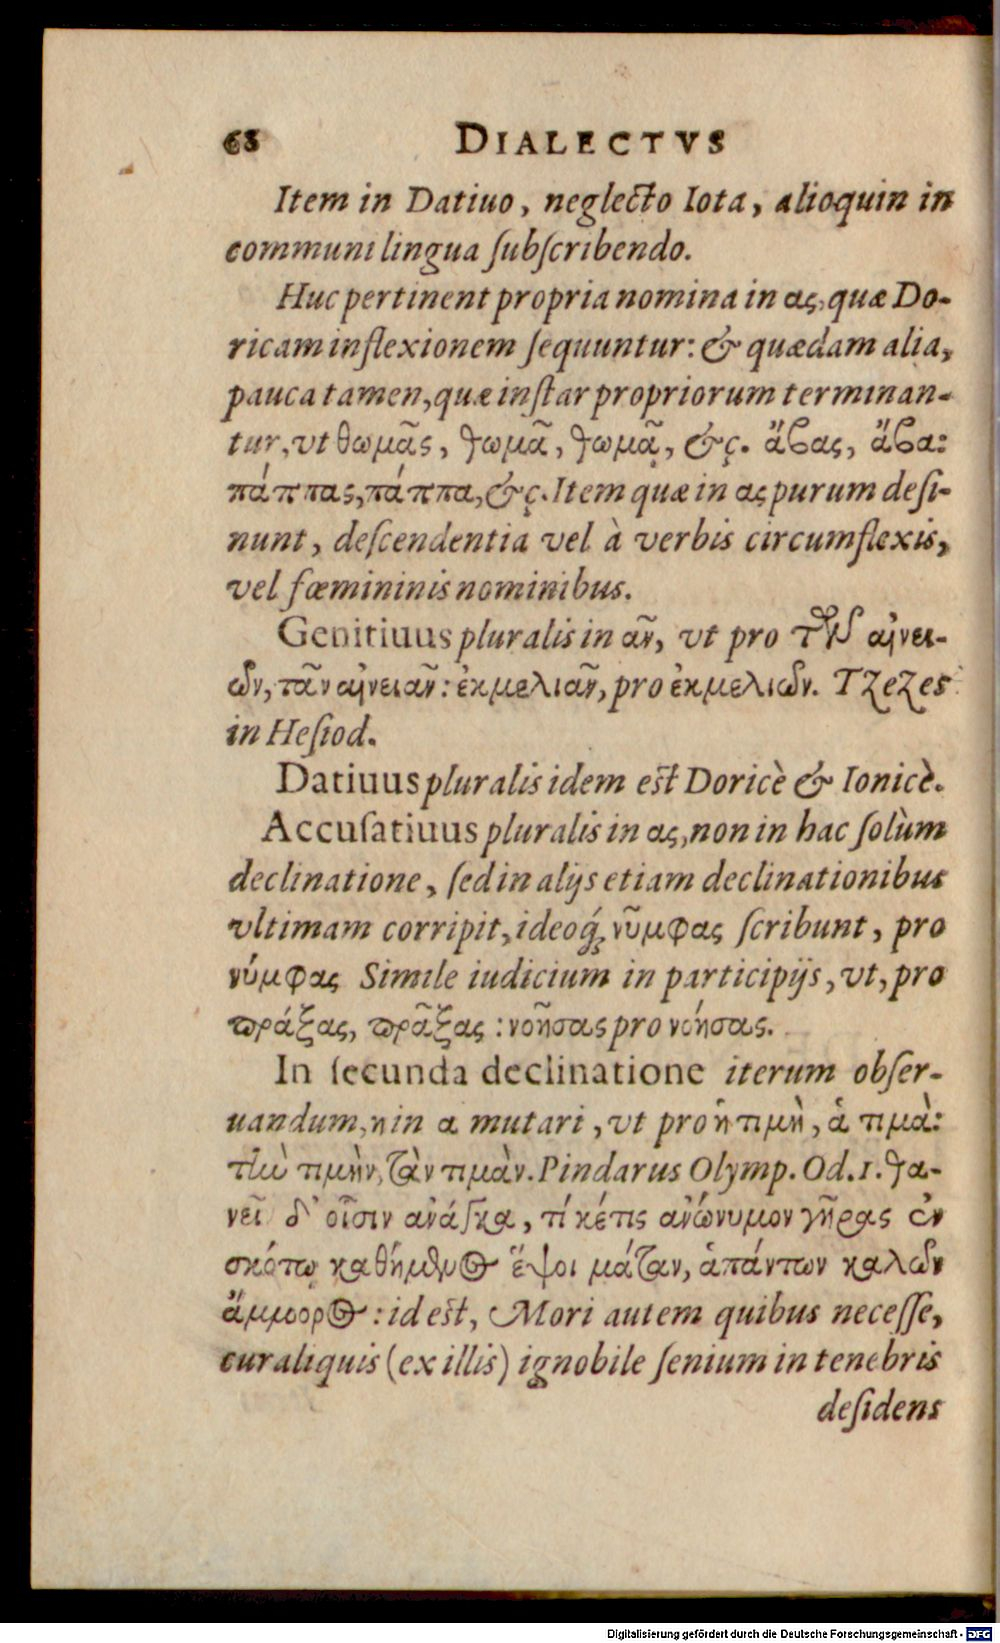 68 DIALECTVS
Item in Datiuo, neglecto Iota, alioquin in
communi lingua ſubſcribendo.
Huc pertinent propria nomina in ας, quæ Do-
ricam inflexionem ſequuntur: & quædam alia,
pauca tamen, quæ inſtar propriorum terminan-
tur, vt θωμᾶς, θωμᾶ, θωμᾷ, &ç. ἄϐας, ἄϐα:
πάππας, πάππα, &ç. Item quæ in ας purum deſi-
nunt, deſcendentia vel à verbis circumflexis,
vel fœmininis nominibus.
Genitiuus pluralis in ᾶν, vt pro τῶν αἰνει-
ῶν, τᾶν αἰνειᾶν: ἐκμελιᾶν, pro ἐκμελιῶν. Tzezes
in Heſiod.
Datiuus pluralis idem eſt Doricè & Ionicè.
Accuſatiuus pluralis in ας, non in hac ſolùm
declinatione, ſed in alijs etiam declinationibus
vltimam corripit, ideoq́; νῦμφας ſcribunt, pro
νύμφας Simile iudicium in participijs, vt, pro
πράξας, πρᾶξας: νοῆσας pro νοήσας.
In ſecunda declinatione iterum obſer-
uandum, η in α mutari, vt pro ἡ τιμὴ, ἁ τιμὰ:
τὴν τιμὴν, τὰν τιμὰν. Pindarus Olymp. Od. 1. θα-
νεῖν δ' οἷσιν ἀνάγκα, τί κέ τις ἀνώνυμον γῆρας ἐν
σκότῳ καθήμενος ἕψοι μάταν, ἁπάντων καλῶν
ἄμμορος: id eſt, Mori autem quibus neceſſe,
cur aliquis (ex illis) ignobile ſenium in tenebris
deſidens
Digitalisierung gefördert durch die Deutsche Forschungsgemeinschaft - DFG